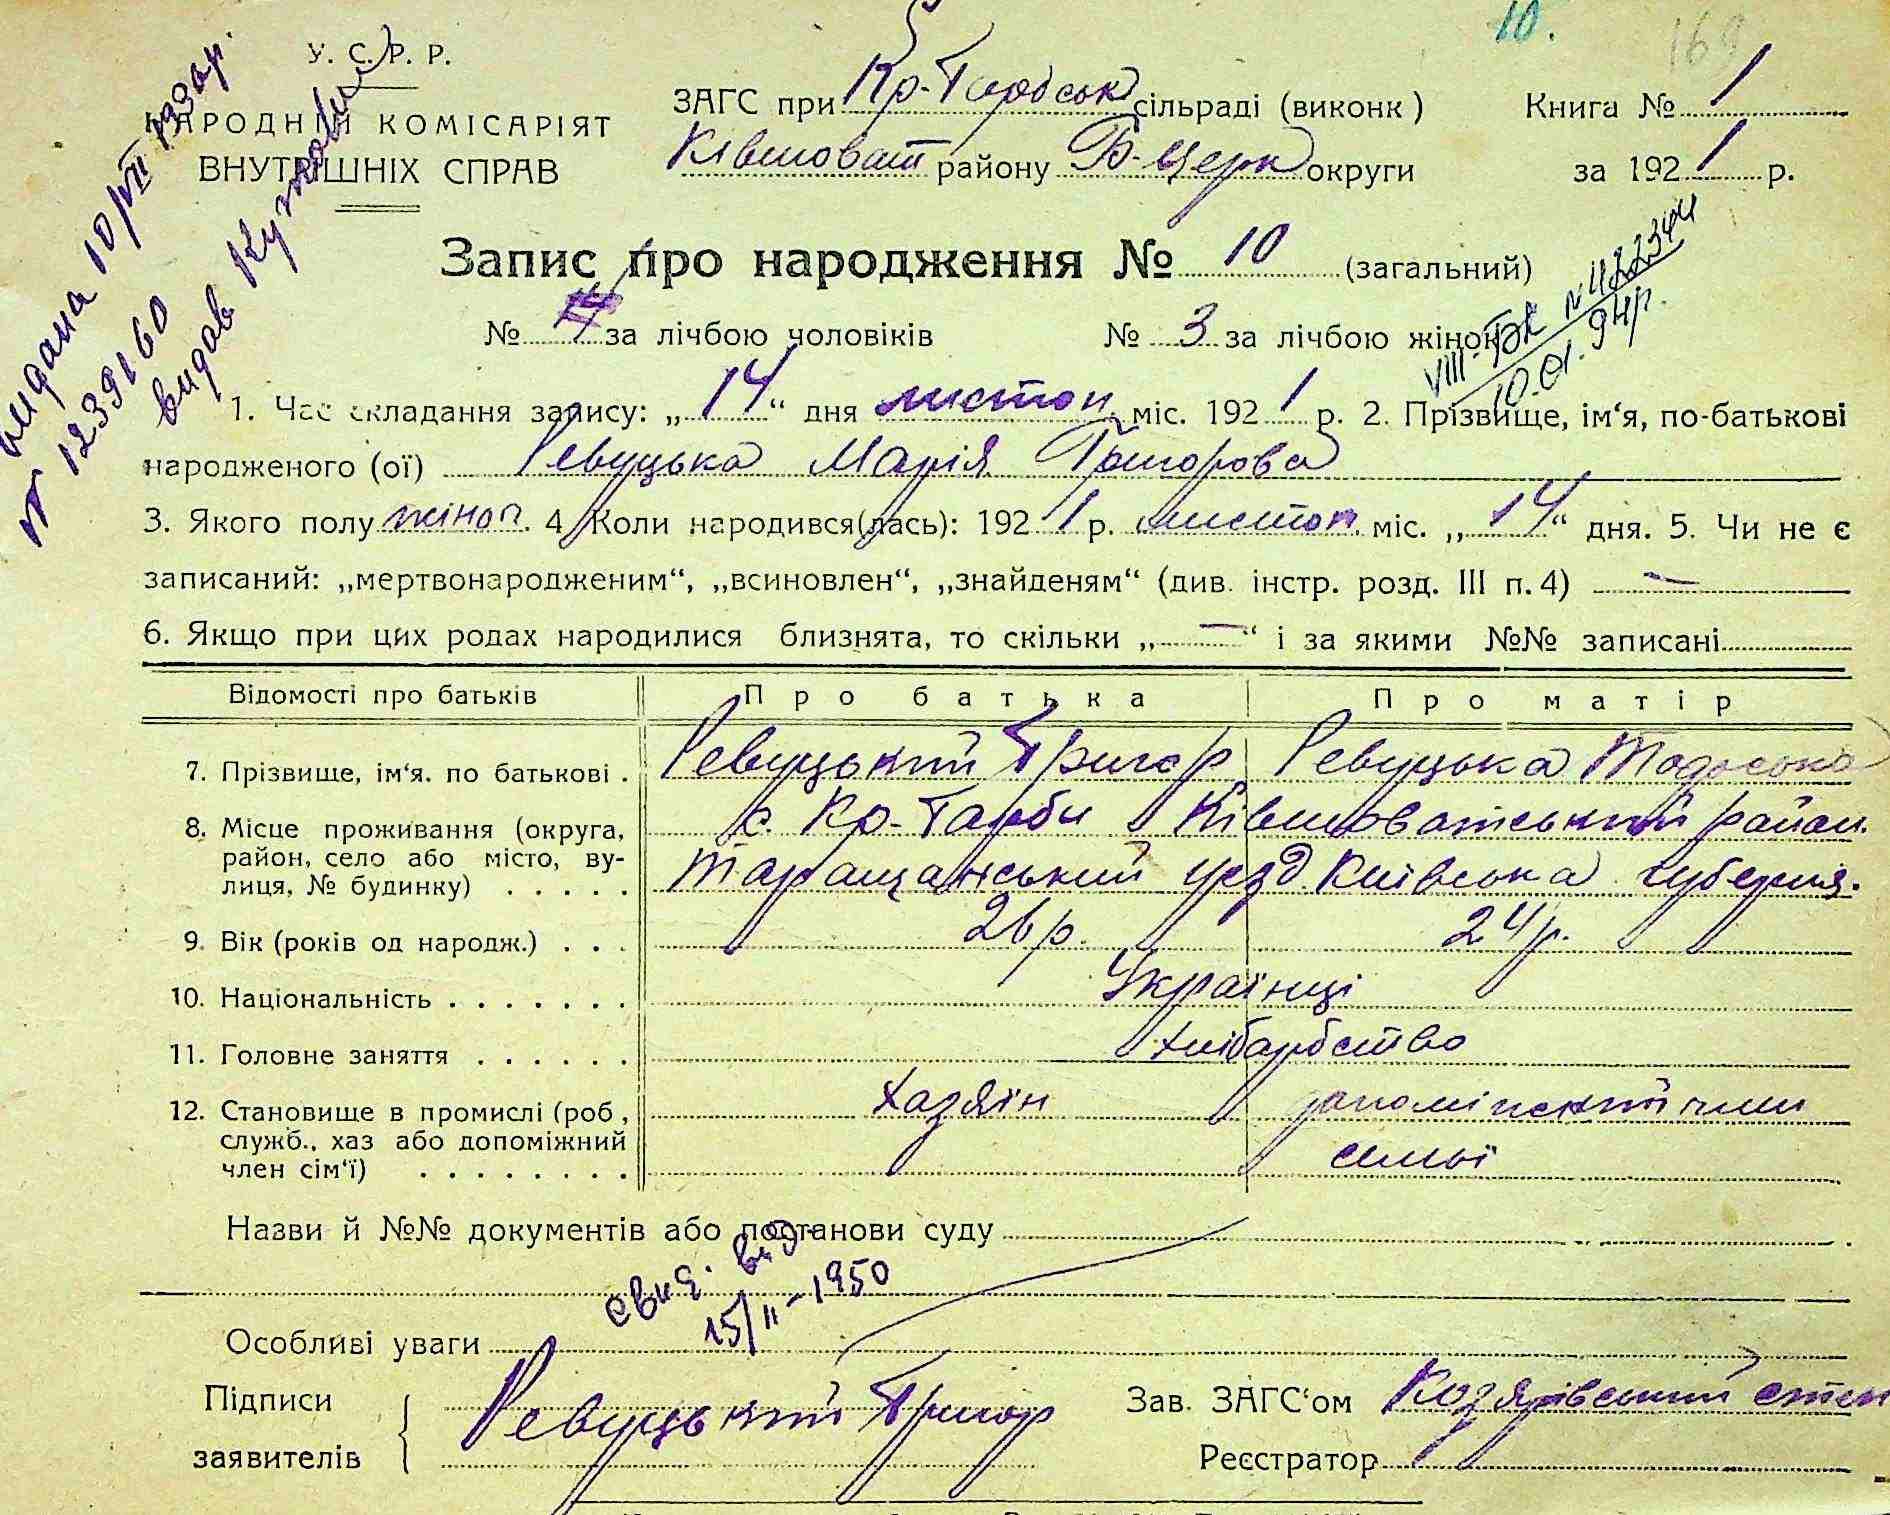 10. 169
У. С. Р. Р.
НАРОДНІЙ КОМІСАРІЯТ
ВНУТРІШНІХ СПРАВ
ЗАГС при Кр-Тарбськ сільраді (виконк) Книга № 1
Ківшоват району Б-Церк округи за 1921 р.
видана 10/VII 193
12391160
видав
Запис про народження № 10 (загальний)
№ за лічбою чоловіків № 3 за лічбою жінок
VIII-БК № 422344
10.01.94р.
1. Час складання запису: „14“ дня листоп. міс. 1921 р. 2. Прізвище, ім‘я, по-батькові
народженого (ої) Ревуцька Марія Григорова
3. Якого полу жіноч. 4. Коли народився(лась): 1921 р. листоп. міс. „14“ дня. 5. Чи не є
записаний: „мертвонародженим“, „всиновлен“, „знайденям“ (див. інстр. розд. III п. 4) —
6. Якщо при цих родах народилися близнята, то скільки „—“ і за якими №№ записані
Відомості про батьків Про батька Про матір
7. Прізвище, ім‘я. по батькові . Ревуцький Григор Ревуцька Тодоська
8. Місце проживання (округа, район, село або місто, вулиця, № будинку) . . . . . с. Кр-Тарби Ківшоватський район.
Таращанський уезд Київська губерния.
9. Вік (років од народж.) . . . 26 р. 24 р.
10. Національність . . . . . . . Українці
11. Головне заняття . . . . . . Хлібарбство
12. Становище в промислі (роб, служб., хаз або допоміжний член сім‘ї) . . . . . . . . Хазяїн член
семьї
Назви й №№ документів або постанови суду
свид. вид.
15/II-1950
Особливі уваги
Підписи
заявителів
Ревуцький Григор
Зав. ЗАГС‘ом
Реєстратор